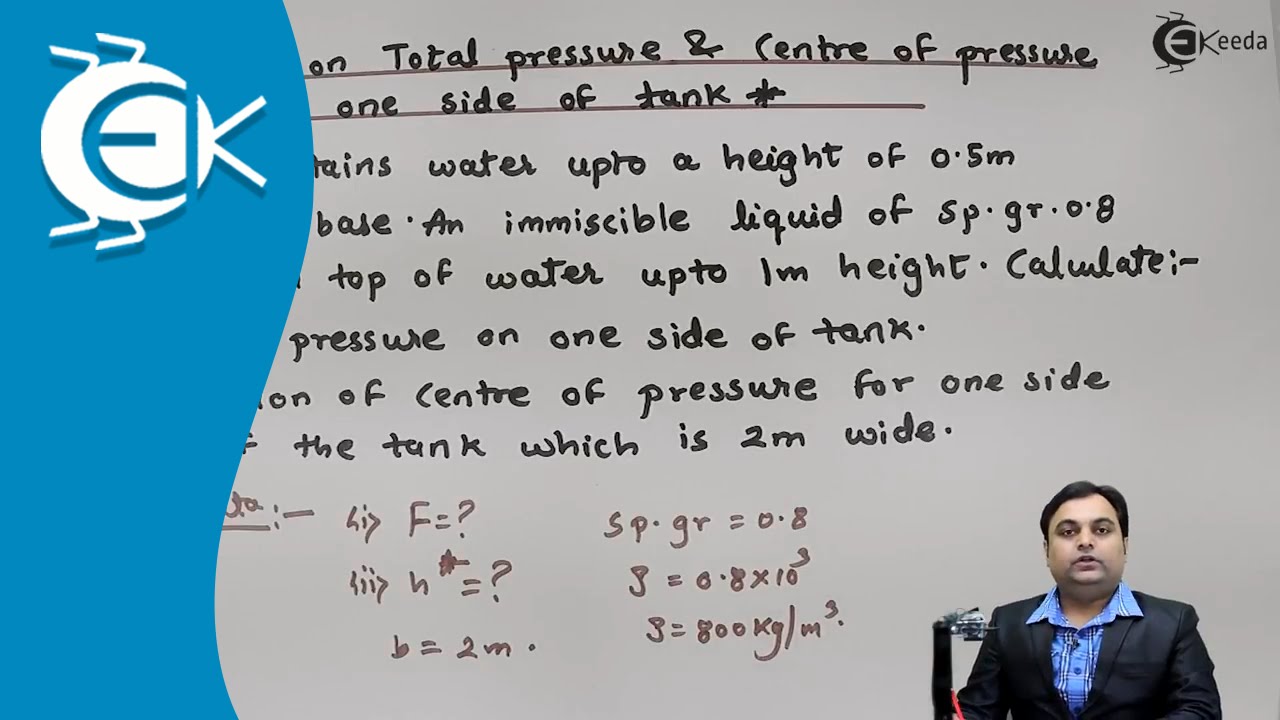 EK
Ekeeda
on Total pressure & Centre of pressure
one side of tank *
tains water upto a height of 0.5m
base. An immiscible liquid of sp.gr.0.8
top of water upto 1m height. Calculate:-
pressure on one side of tank.
ion of centre of pressure for one side
the tank which is 2m wide.
ta:- (i) F=? sp.gr = 0.8
(ii) h*=? ρ = 0.8×10³
b = 2m. ρ = 800kg/m³.